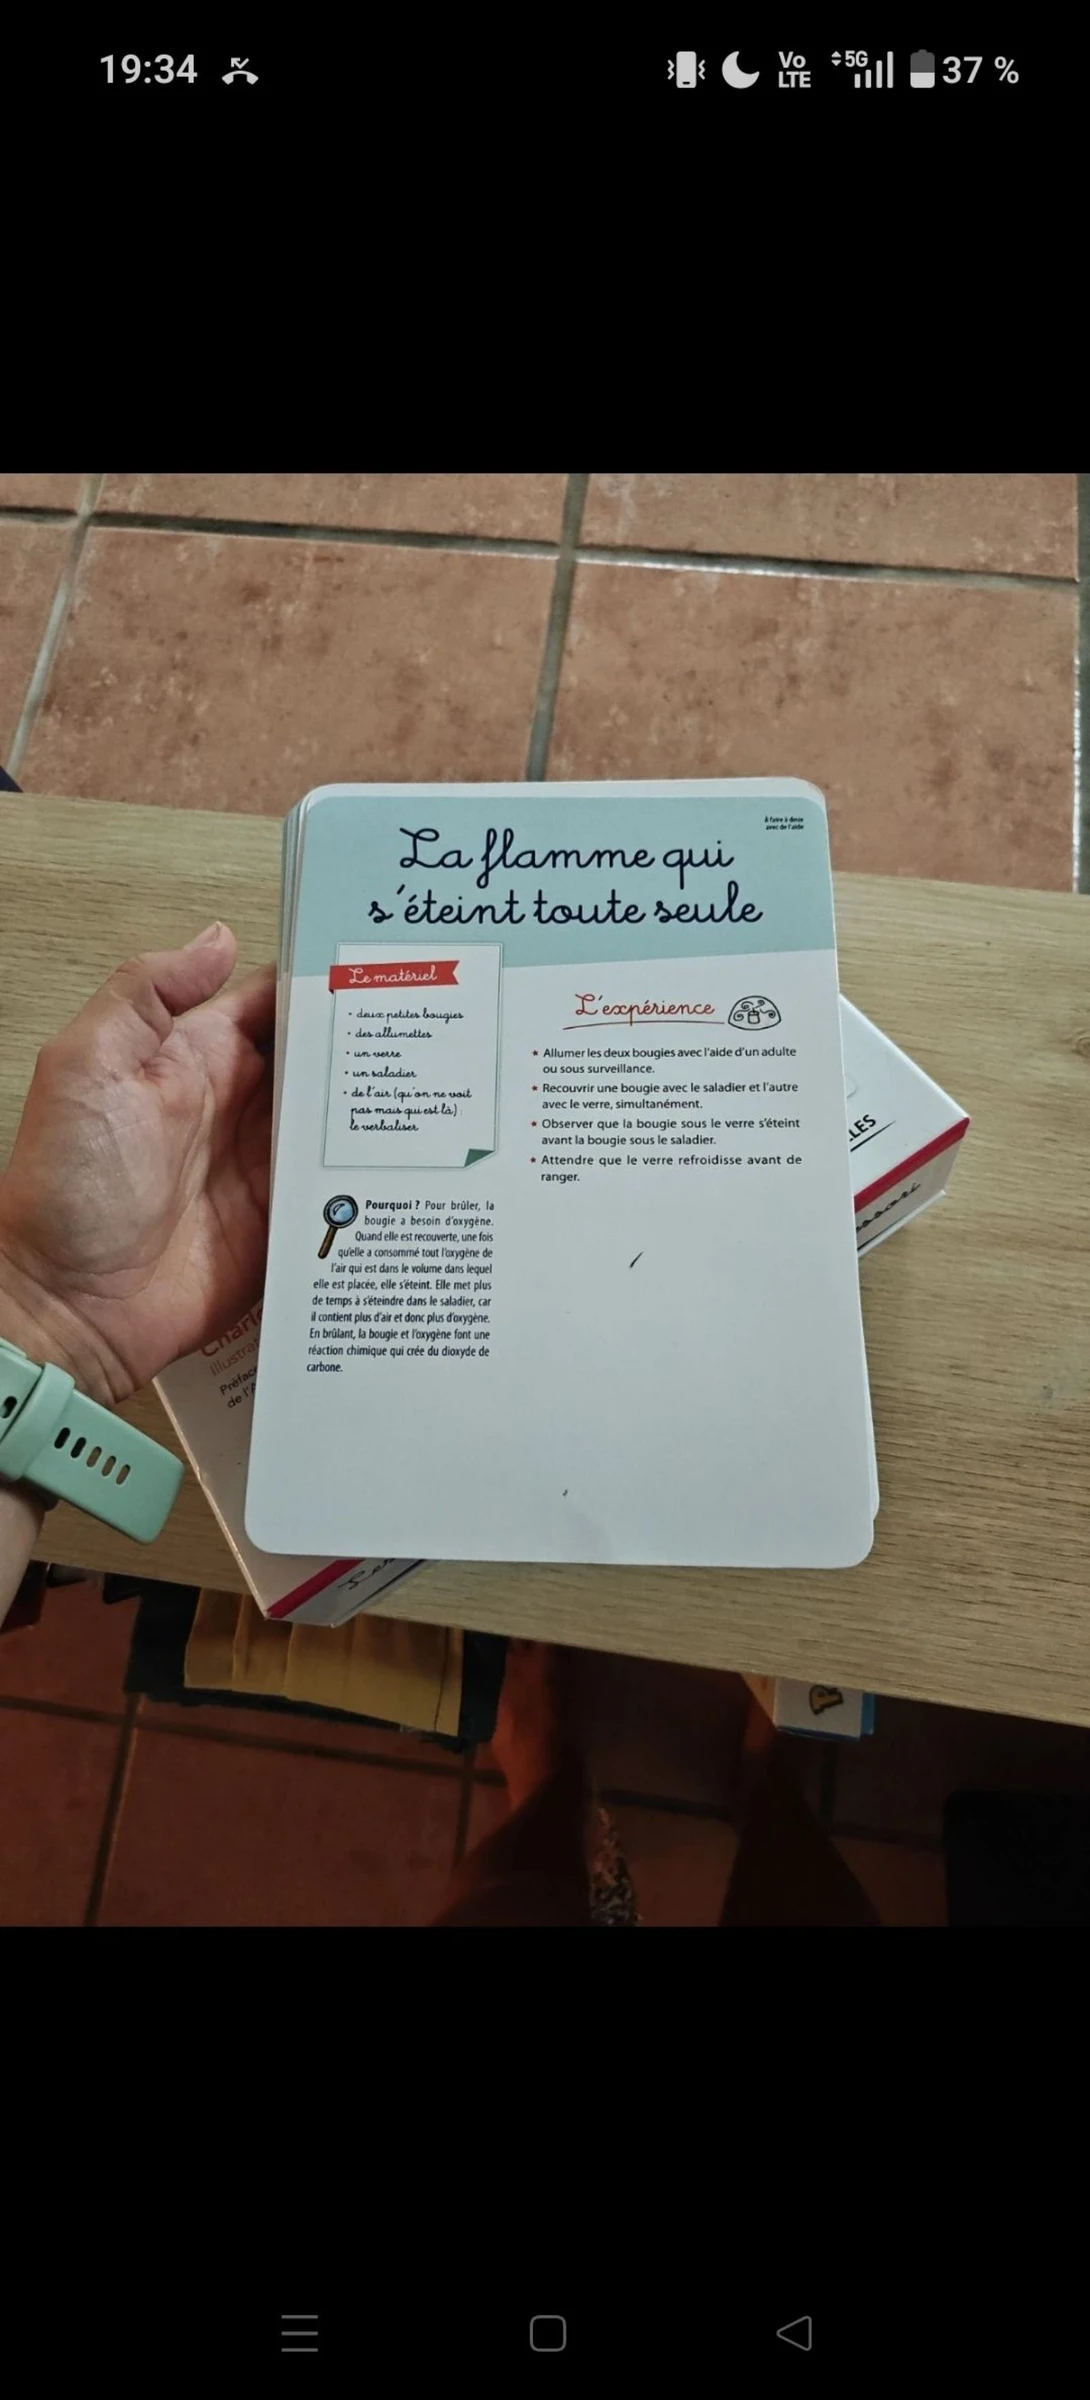 19:34
Vo
LTE
5G
37 %
À faire à deux
avec de l'aide
La flamme qui
s'éteint toute seule
Le matériel
• deux petites bougies
• des allumettes
• un verre
• un saladier
• de l'air (qu'on ne voit
pas mais qui est là) :
le verbaliser
Pourquoi ? Pour brûler, la
bougie a besoin d'oxygène.
Quand elle est recouverte, une fois
qu'elle a consommé tout l'oxygène de
l'air qui est dans le volume dans lequel
elle est placée, elle s'éteint. Elle met plus
de temps à s'éteindre dans le saladier, car
il contient plus d'air et donc plus d'oxygène.
En brûlant, la bougie et l'oxygène font une
réaction chimique qui crée du dioxyde de
carbone.
L'expérience
* Allumer les deux bougies avec l'aide d'un adulte
ou sous surveillance.
* Recouvrir une bougie avec le saladier et l'autre
avec le verre, simultanément.
* Observer que la bougie sous le verre s'éteint
avant la bougie sous le saladier.
* Attendre que le verre refroidisse avant de
ranger.
LES
ssori
Charl
Illustrat
Préface
de l'A
Les
P